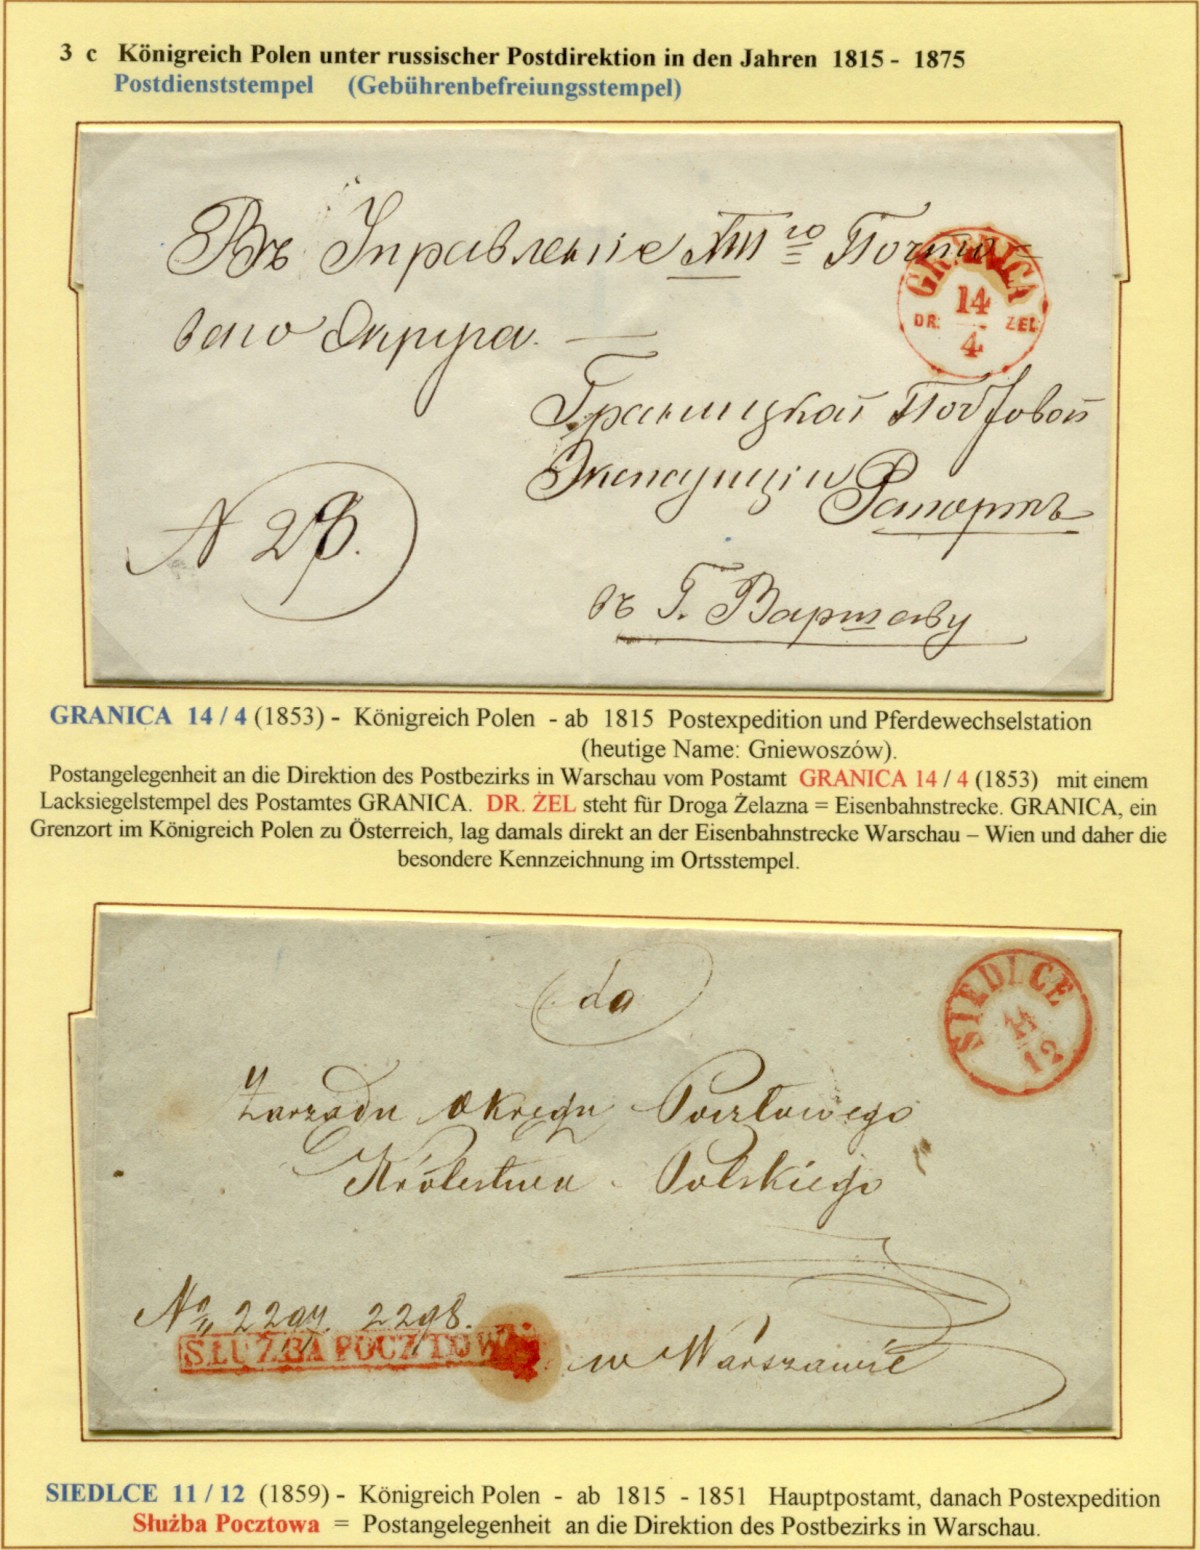 3 c Königreich Polen unter russischer Postdirektion in den Jahren 1815 - 1875
Postdienststempel (Gebührenbefreiungsstempel)
Въ Управленіе XIII го Почто=
ваго Округа.
GRANICA
14
DR. ZEL
4
Границкой
Экспедиціи Рапортъ
N 28.
въ Г. Варшаву
GRANICA 14 / 4 (1853) - Königreich Polen - ab 1815 Postexpedition und Pferdewechselstation
(heutige Name: Gniewoszów).
Postangelegenheit an die Direktion des Postbezirks in Warschau vom Postamt GRANICA 14 / 4 (1853) mit einem
Lacksiegelstempel des Postamtes GRANICA. DR. ŻEL steht für Droga Żelazna = Eisenbahnstrecke. GRANICA, ein
Grenzort im Königreich Polen zu Österreich, lag damals direkt an der Eisenbahnstrecke Warschau – Wien und daher die
besondere Kennzeichnung im Ortsstempel.
do
SIEDLCE
11
12
Zarządu Okręgu Pocztowego
Królestwa Polskiego
No 2297. 2298.
SŁUŻBA POCZTOWA
w Warszawie
SIEDLCE 11 / 12 (1859) - Königreich Polen - ab 1815 - 1851 Hauptpostamt, danach Postexpedition
Służba Pocztowa = Postangelegenheit an die Direktion des Postbezirks in Warschau.